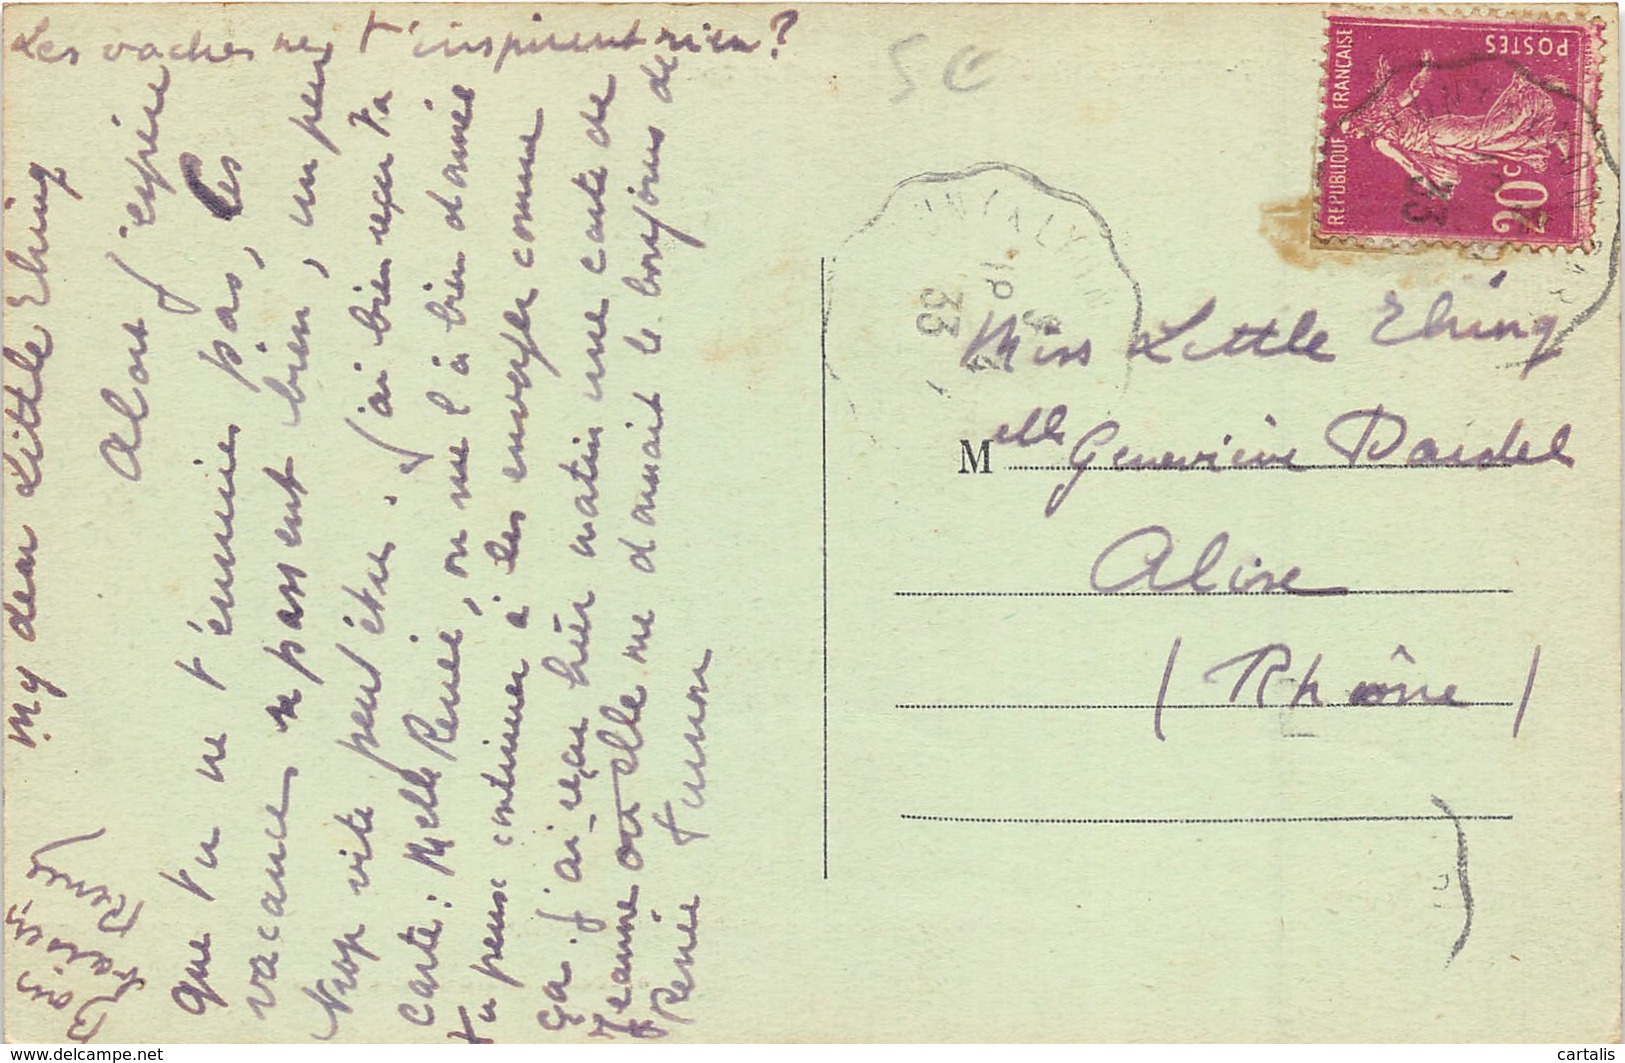 Les vaches ne t'inspirent rien?
my dear Little Thing
Alors j'espère
que tu ne t'ennuies pas, les
vacances se passent bien, un peu
trop vite peut être. J'ai bien reçu ta
carte: Melle Renée, on me l'a bien donnée
tu peux continuer à les envoyer comme
ça. J'ai reçu hier matin une carte de
Jeanne où elle me donnait le bonjour de
Renée
5€
REPUBLIQUE FRANÇAISE
POSTES
20c
33
33
Miss Little Thing
Melle Geneviève
Alix
(Rhône)
www.delcampe.net
cartalis